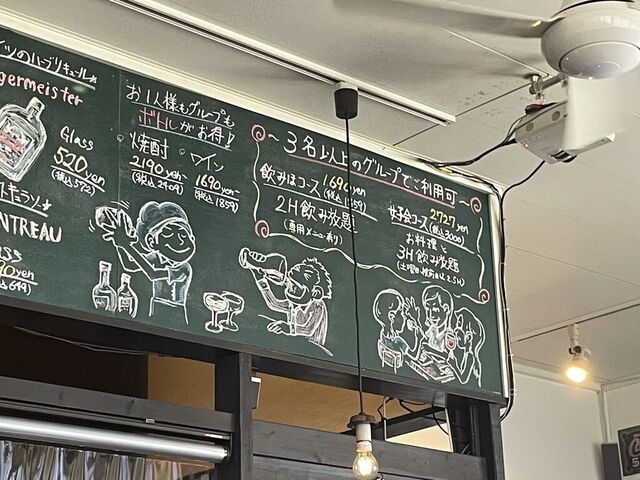 ツのハーブリキュール
germeister
Glass
520yen
(税込572)
NTREAU
yen
お1人様もグループも
ボトルがお得!!
焼酎
2190yen~
(税込2409)
ワイン
1690yen~
(税込1859)
~3名以上のグループでご利用可~
飲みほコース 1690yen
(税込1859)
2H飲み放題
(専用メニュー有り)
女子会コース 2727yen
(税込3000)
お料理と
3H飲み放題